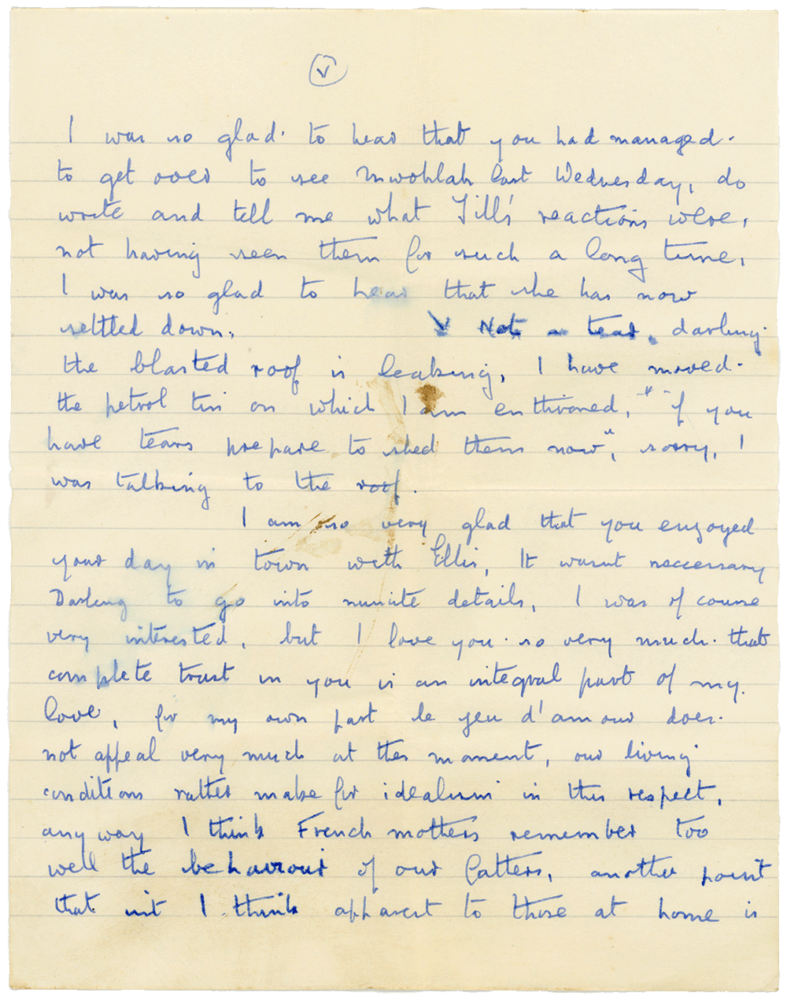 V
I was so glad. to hear that you had managed.
to get over to see Mwohlah last Wednesday, do
write and tell me what Jill's reactions were,
not having seen them for such a long time,
I was so glad to hear that she has now
settled down. Not a tear, darling.
the blasted roof is leaking, I have moved.
the petrol tin on which I am enthroned, "if you
have tears prepare to shed them now", sorry, I
was talking to the roof.
I am so very glad that you enjoyed
your day in town with Ellis, It wasnt neccessary
Darling to go into minute details, I was of course
very interested, but I love you so very much. that
complete trust in you is an integral part of my.
love, for my own part le jeu d'amour does.
not appeal very much at the moment, our living
conditions rather make for idealism in this respect,
anyway I think French mothers remember too
well the behaviour of our fathers, another point
that isnt I think apparent to those at home is